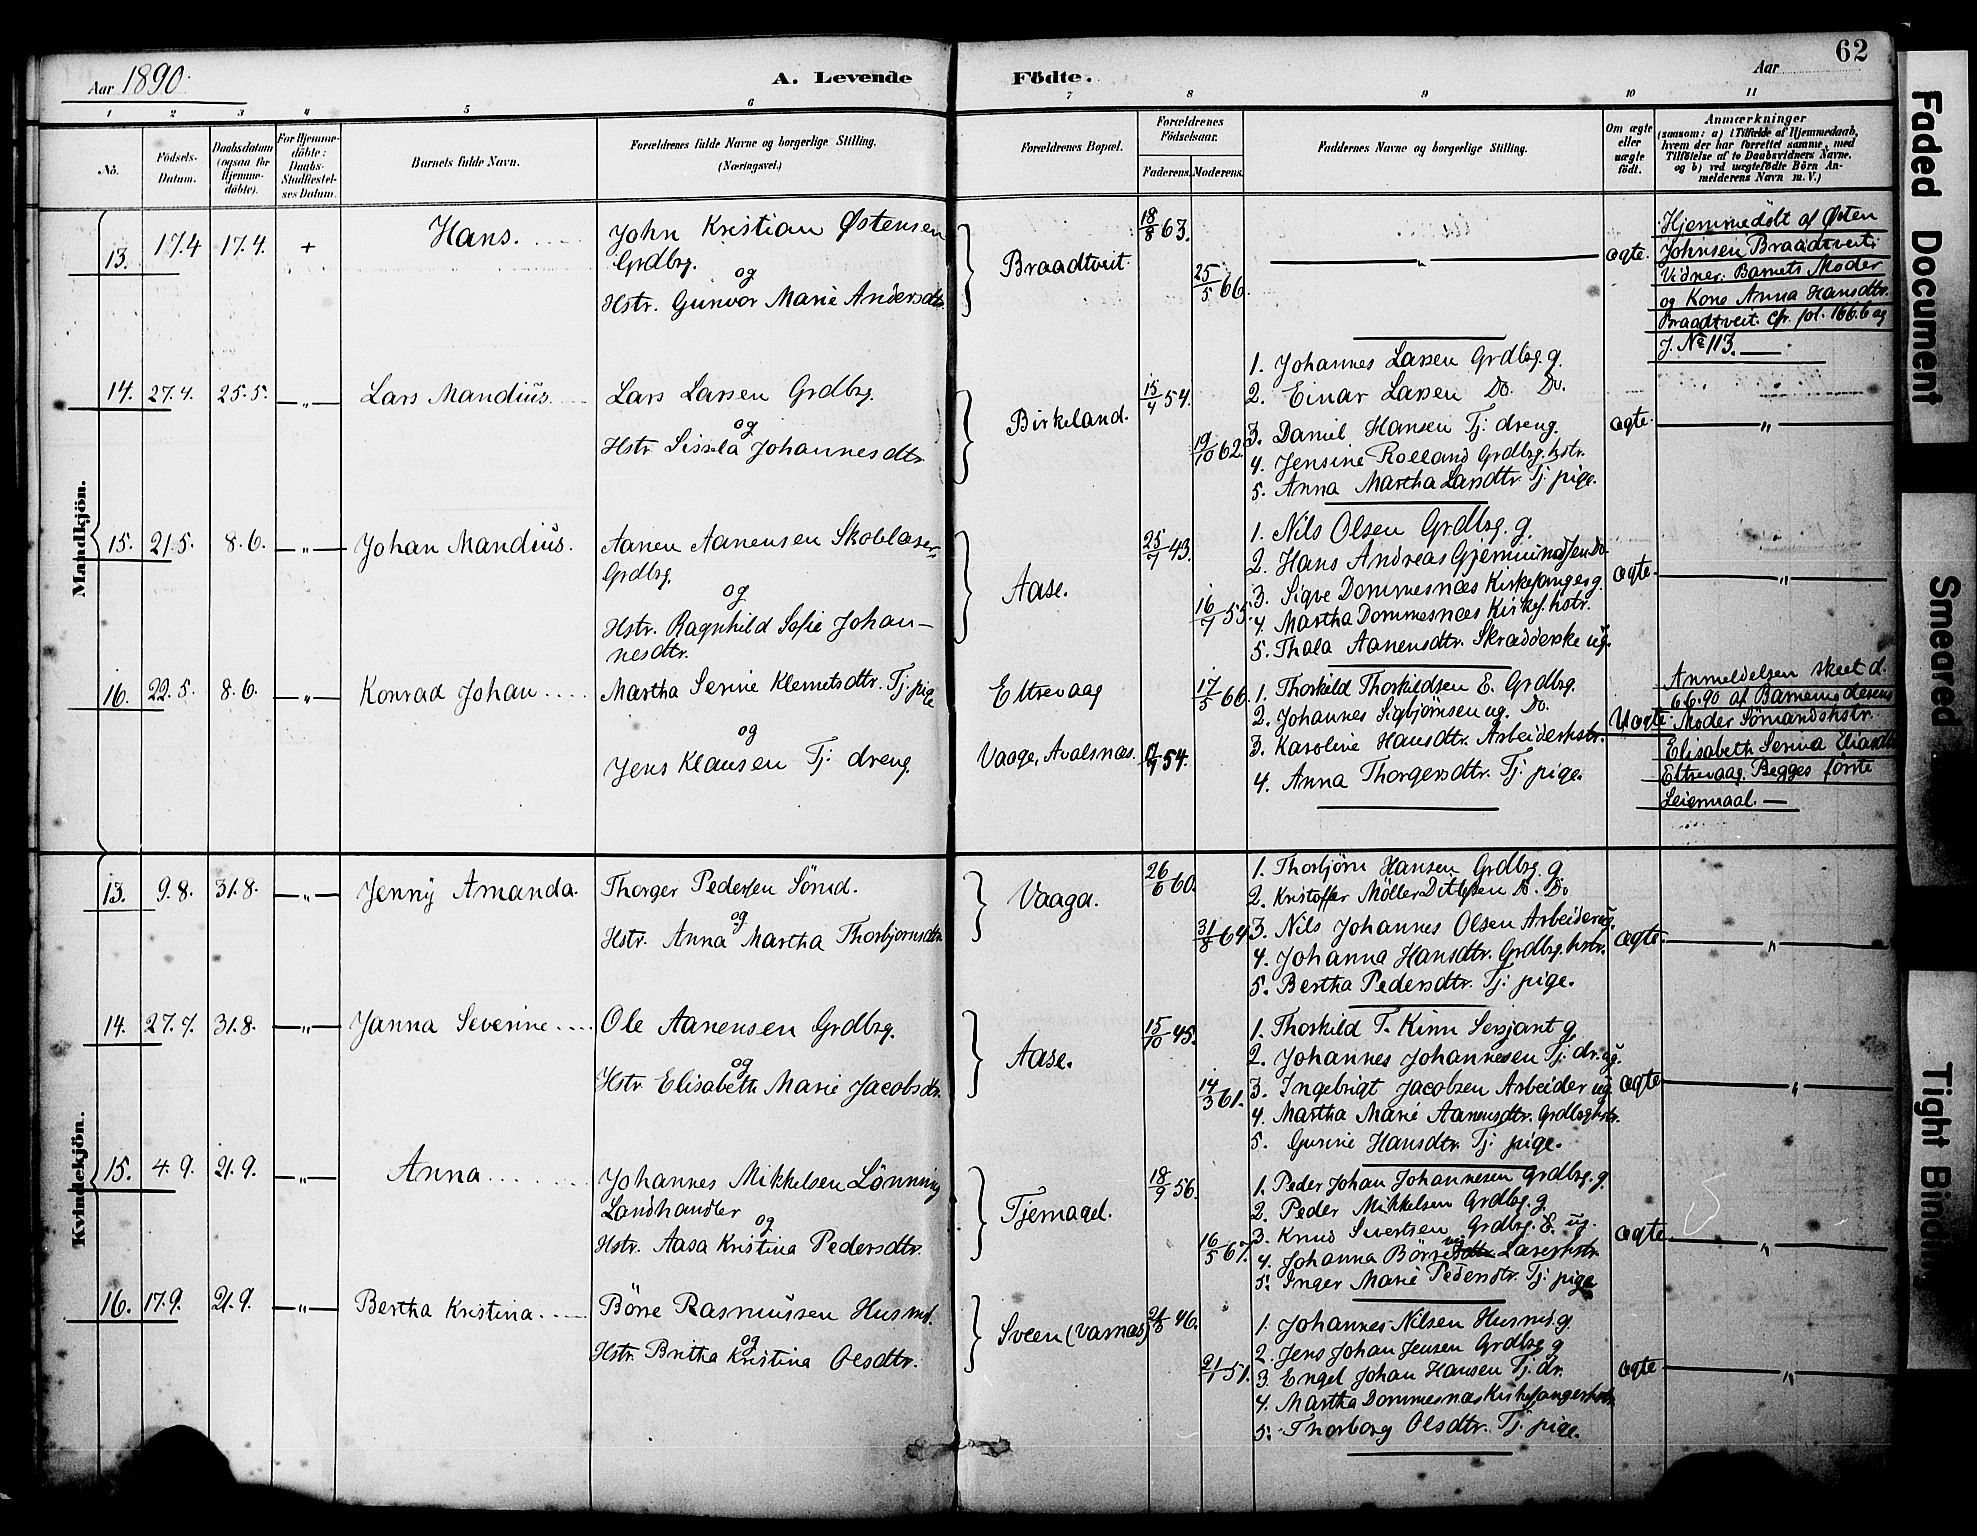 62
Aar 1890.
A. Levende Födte.
Aar
1 2 3 4 5 6 7 8 9 10 11
No.
Födsels-
Datum.
Daabsdatum
(ogsaa for
Hjemme-
döbte).
For Hjemme-
döbte:
Daabs-
Stadfæstel-
ses Datum.
Barnets fulde Navn.
Forældrenes fulde Navne og borgerlige Stilling.
(Næringsvei.)
Forældrenes Bopæl.
Forældrenes
Födselsaar.
Faderens. Moderens.
Faddernes Navne og borgerlige Stilling.
Om ægte
eller
uægte
födt.
Anmærkninger
(saasom: a) i Tilfælde af Hjemmedaab,
hvem der har forrettet samme, med
Tilföielse af to Daabsvidners Navne,
og b) ved uægtefödte Börn An-
melderens Navn m. V.)
Mandkjön.
13. 17.4 17.4. + Hans.
John Kristian Østensen
Grdbrg.
og
Hstr. Gunvor Marie Andersdtr.
Braadtveit.
18/8 63.
25/5 66.
— " —
ægte.
Hjemmedøbt af Østen
Johnsen Braadtveit;
Vidner: Barnets Moder
og Kone Anna Hansdtr.
Braadtveit. cfr. fol. 166.b og
J. No 113.
14. 27.4. 25.5. — " — Lars Mandius
Lars Larsen Grdbrg.
og
Hstr. Sissela Johannesdtr.
Birkeland.
15/4 54.
19/10 62.
1. Johannes Larsen Grdbrg. g.
2. Einar Larsen Do. Do.
3. Daniel Hansen Tj: dreng.
4. Jensine Roeland Grdbrg. hstr.
5. Anna Martha Larsdtr. Tj: pige.
ægte.
— " —
15. 21.5. 8.6. — " — Johan Mandius.
Aanen Aanensen Skoblæser-
Grdbrg.
og
Hstr. Ragnhild Sofie Johan-
nesdtr.
Aase.
25/7 43.
16/7 55.
1. Nils Olsen Grdbrg. g.
2. Hans Andreas Gjermundsen Do.
3. Sigve Dommesnæs Kirkesanger g.
4. Martha Dommesnæs Kirkes. hstr.
5. Thala Aanensdtr. Skrædderske ug.
ægte.
— " —
16. 22.5. 8.6. — " — Konrad Johan
Martha Serine Klemetsdtr. Tj: pige
og
Jens Klausen Tj: dreng.
Eltrevaag
Vaage, Avalsnæs.
17/5 66.
54.
1. Thorkild Thorkildsen E. Grdbrg.
2. Johannes Sigbjørnsen ug. Do.
3. Karoline Hansdtr. Arbeiderhstr.
4. Anna Thorgersdtr. Tj: pige.
Uægte.
Anmeldelsen skeet d.
6/6.90 af Barnemoderens
Moder Sømandshstr.
Elisabeth Serina Eliasdtr.
Eltrevaag. Begges første
Leiermaal. —
Kvindekjön.
13. 9.8. 31.8. — " — Jenny Amanda.
Thorger Pedersen Sömd.
og
Hstr. Anna Martha Thorbjørnsdtr.
Vaaga.
26/6 60.
31/8 64.
1. Thorbjörn Hansen Grdbrg. g
2. Kristoffer Möller Ditlefsen Do. Do
3. Nils Johannes Olsen Arbeider ug.
4. Johanna Hansdtr. Grdbrg. hstr.
5. Bertha Pedersdtr. Tj: pige.
ægte.
— " —
14. 27.7. 31.8. — " — Janna Severine
Ole Aanensen Grdbrg.
og
Hstr. Elisabeth Marie Jacobsdtr.
Aase.
15/10 45.
14/3 61.
1. Thorkild T. Kinn Sersjant g.
2. Johannes Johannesen Tj: dr. ug.
3. Ingebrigt Jacobsen Arbeider ug.
4. Martha Marie Aanensdtr. Grdbrghstr.
5. Gurine Hansdtr. Tj: pige.
ægte
— " —
15. 4.9. 21.9. — " — Anna
Johannes Mikkelsen Lønning
Landhandler
og
Hstr. Aasa Kristina Pedersdtr.
Tjernagel.
18/9 56.
16/5 67.
1. Peder Johan Johannesen Grdbrg. g
2. Peder Mikkelsen Grdbrg. g
3. Knud Sivertsen Grdbrg. E. ug.
4. Johanna Börre Lærerhstr.
5. Inger Marie Pedersdtr. Tj: pige
ægte
— " —
16. 17.9. 21.9. — " — Bertha Kristina
Börre Rasmussen Husmd.
og
Hstr. Britha Kristina Olsdtr.
Sveen (Varnæs)
46.
21/1 51.
1. Johannes Nilsen Husmd g
2. Jens Johan Jensen Grdbrg. g
3. Engel Johan Hansen Tj: dr.
4. Martha Dommesnæs Kirkesangerhstr.
5. Thorborg Olsdtr. Tj: pige.
ægte
— " —
Faded Document
Smeared
Tight Bindin